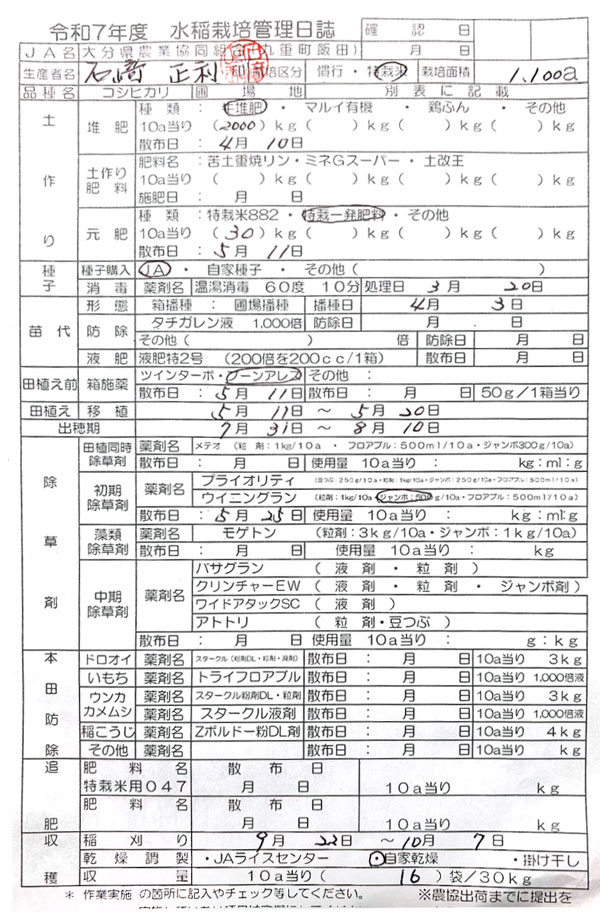 令和7年度 水稲栽培管理日誌 確認日
ＪＡ名 大分県農業協同組合(九重町飯田) 月 日
生産者名 石﨑 正利 印 栽培区分 慣行・特栽米 栽培面積 1,100a
品種名 コシヒカリ 圃場地 別表に記載
土作り 堆肥 種類：牛堆肥・マルイ有機・鶏ふん・その他
10a当り (2000)kg( )kg( )kg( )kg
散布日：4月10日
土作り肥料 肥料名：苦土重焼リン・ミネGスーパー・土改王
10a当り ( )kg( )kg( )kg( )kg
施肥日： 月 日
元肥 種類：特栽米882・特栽一発肥料・その他
10a当り (30)kg( )kg( )kg( )kg
散布日：5月11日
種子 種子購入 JA・自家種子・その他( )
消毒 薬剤名 温湯消毒 60度 10分 処理日 3月20日
苗代 形態 箱播種：圃場播種 播種日 4月3日
防除 タチガレン液 1,000倍 防除日 月 日
その他( ) 倍 防除日 月 日
液肥 液肥特2号 (200倍を200cc/1箱) 散布日 月 日
田植え前 箱施薬 ツインターボ・ブーンアレス その他：
散布日：5月11日 50g/1箱当り
田植え 移植 5月11日 ～ 5月20日
出穂期 7月31日 ～ 8月10日
除草剤 田植同時除草剤 薬剤名 メテオ (粒剤:1kg/10a・フロアブル:500ml/10a・ジャンボ300g/10a)
散布日： 月 日 使用量 10a当り： kg:ml:g
初期除草剤 薬剤名 プライオリティ (豆つぶ:250g/10a・粒剤:1kg/10a・ジャンボ:250g/10a・フロアブル:500ml/10a)
ウイニングラン (粒剤:1kg/10a・ジャンボ:500g/10a・フロアブル:500ml/10a)
散布日：5月25日 使用量 10a当り： kg:ml:g
藻類除草剤 薬剤名 モゲトン (粒剤:3kg/10a・ジャンボ:1kg/10a)
散布日： 月 日 使用量 10a当り： kg
中期除草剤 薬剤名 バサグラン (液剤・粒剤)
クリンチャーEW (液剤・粒剤・ジャンボ剤)
ワイドアタックSC (液剤)
アトトリ (粒剤・豆つぶ)
散布日： 月 日 使用量 10a当り： g:kg
本田防除 ドロオイ 薬剤名 スタークル(粉剤DL・粒剤・液剤) 散布日： 月 日 10a当り 3kg
いもち 薬剤名 トライフロアブル 散布日： 月 日 10a当り 1,000倍液
ウンカ カメムシ 薬剤名 スタークル粉剤DL・粒剤 散布日： 月 日 10a当り 3kg
薬剤名 スタークル液剤 散布日： 月 日 10a当り 1,000倍液
稲こうじ 薬剤名 Zボルドー粉DL剤 散布日： 月 日 10a当り 4kg
その他 薬剤名 散布日： 月 日 10a当り kg
追肥 肥料名 散布日
特栽米用047 月 日 10a当り kg
肥料名 散布日
月 日 10a当り kg
収穫 稲刈り 9月22日 ～ 10月7日
乾燥調製 ・JAライスセンター ⊙自家乾燥 ・掛け干し
収量 10a当り( 16 )袋/30kg
＊ 作業実施 の箇所に記入やチェック等してください。 ※農協出荷までに提出を